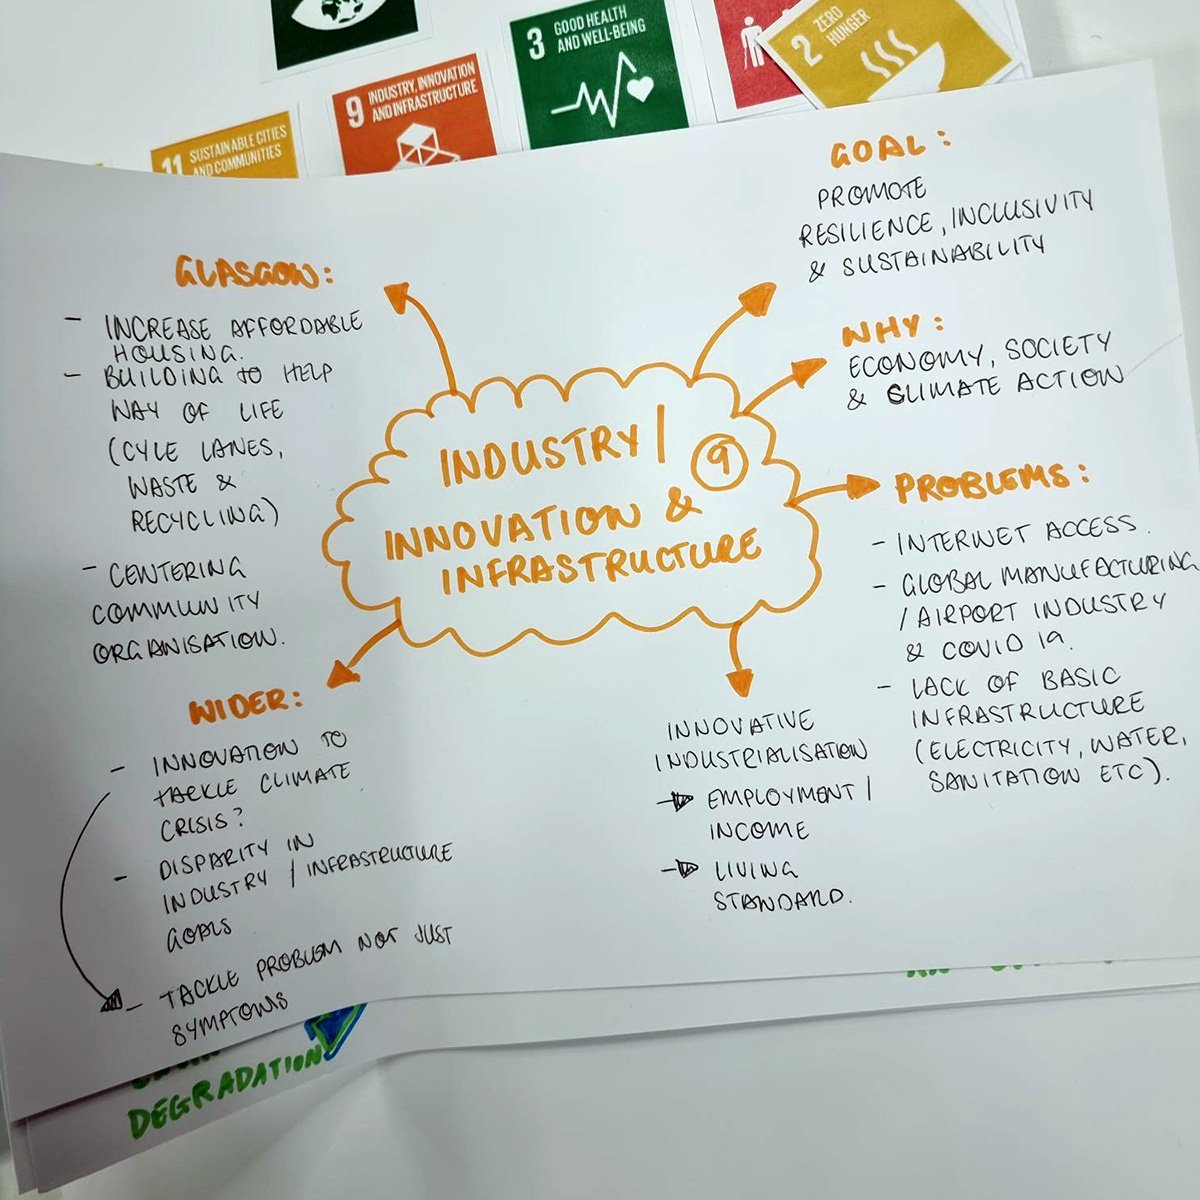 3 GOOD HEALTH
AND WELL-BEING
2 ZERO
HUNGER
9 INDUSTRY, INNOVATION
AND INFRASTRUCTURE
11 SUSTAINABLE CITIES
AND COMMUNITIES
GOAL:
PROMOTE
RESILIENCE, INCLUSIVITY
& SUSTAINABILITY
WHY:
ECONOMY, SOCIETY
& CLIMATE ACTION
PROBLEMS:
- INTERNET ACCESS.
- GLOBAL MANUFACTURING
/ AIRPORT INDUSTRY
& COVID 19.
- LACK OF BASIC
INFRASTRUCTURE
(ELECTRICITY, WATER,
SANITATION ETC).
GLASGOW:
- INCREASE AFFORDABLE
HOUSING.
- BUILDING TO HELP
WAY OF LIFE
(CYLE LANES,
WASTE &
RECYCLING)
- CENTERING
COMMUNITY
ORGANISATION.
INDUSTRY/ 9
INNOVATION &
INFRASTRUCTURE
WIDER:
- INNOVATION TO
TACKLE CLIMATE
CRISIS?
- DISPARITY IN
INDUSTRY / INFRASTRUCTURE
GOALS
- TACKLE PROBLEM NOT JUST
SYMPTOMS
INNOVATIVE
INDUSTRIALISATION
EMPLOYMENT /
INCOME
LIVING
STANDARD.
DEGRADATION